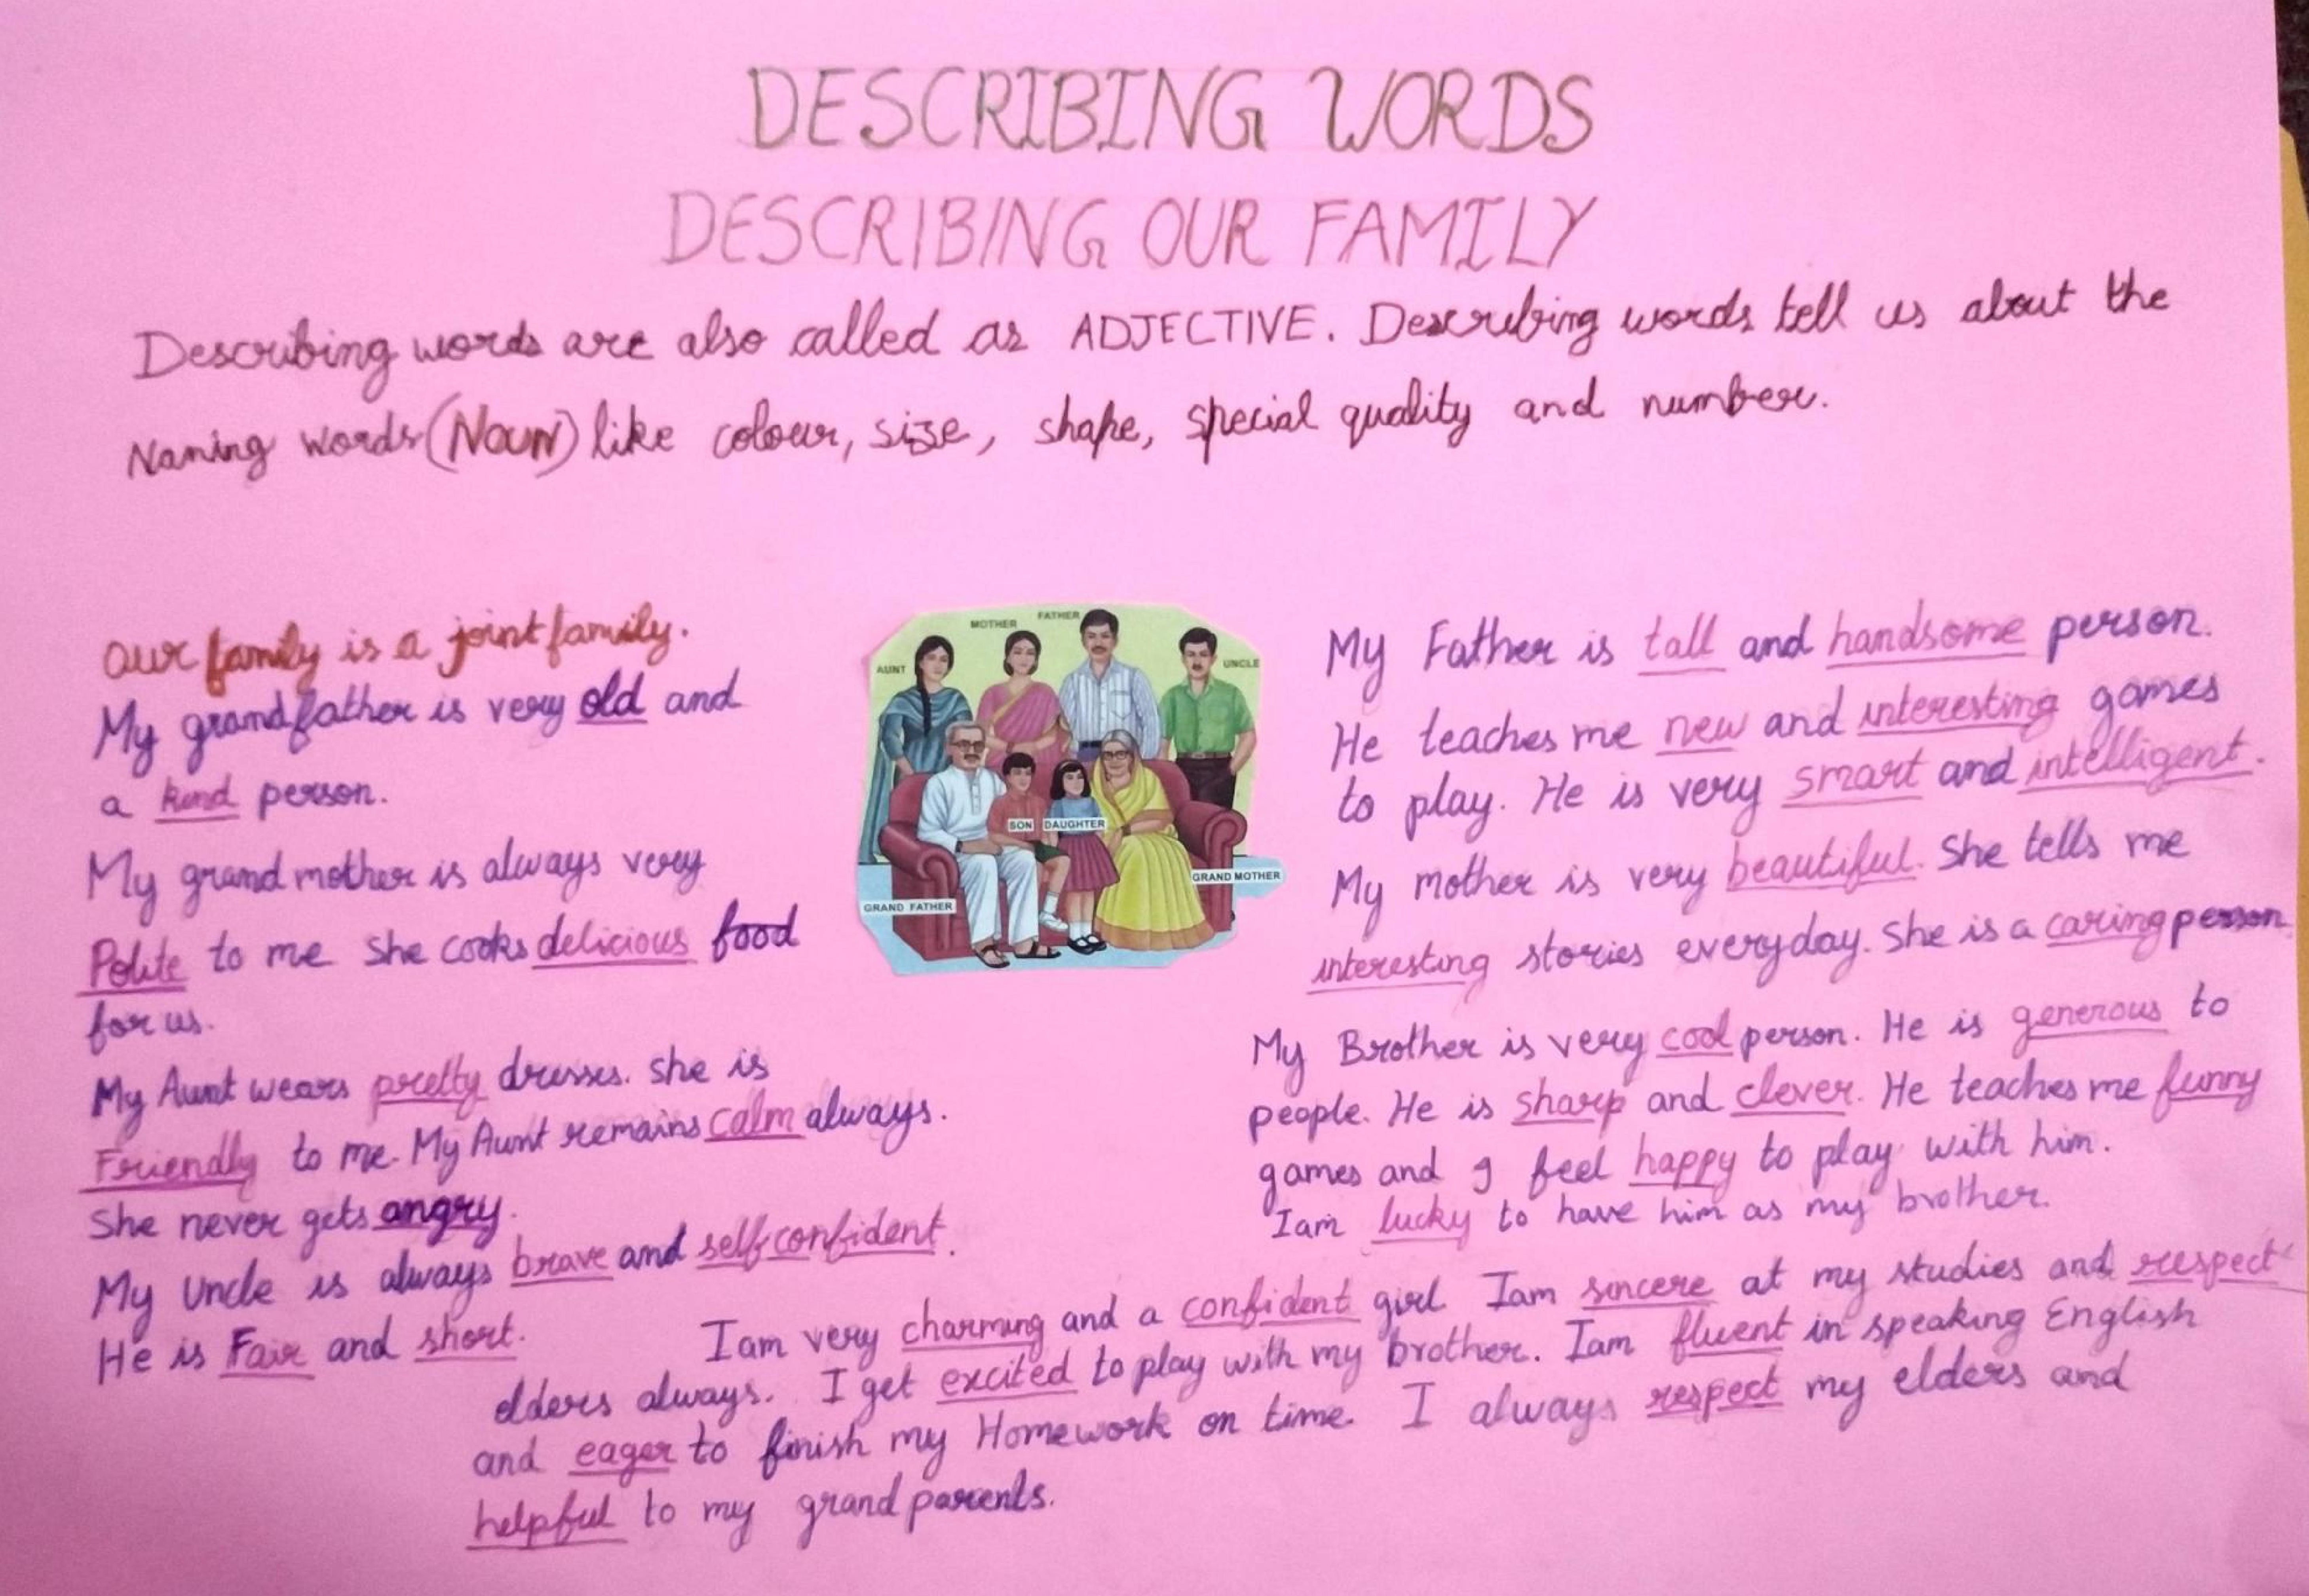 DESCRIBING WORDS
DESCRIBING OUR FAMILY
Describing words are also called as ADJECTIVE. Describing words tell us about the
Naming words (Noun) like colour, size, shape, special quality and number.
Our family is a joint family.
My grandfather is very old and
a kind person.
My grand mother is always very
Polite to me She cooks delicious food
for us.
My Aunt wears pretty dresses. She is
Friendly to me. My Aunt remains calm always.
She never gets angry.
My Uncle is always brave and self confident.
He is Fair and short.
AUNT
MOTHER
FATHER
UNCLE
SON
DAUGHTER
GRAND MOTHER
GRAND FATHER
My Father is tall and handsome person.
He teaches me new and interesting games
to play. He is very smart and intelligent.
My mother is very beautiful. She tells me
interesting stories everyday. She is a caring person
My Brother is very cool person. He is generous to
people. He is sharp and clever. He teaches me funny
games and I feel happy to play with him.
I am lucky to have him as my brother.
I am very charming and a confident girl. I am sincere at my studies and respect
elders always. I get excited to play with my brother. I am fluent in speaking English
and eager to finish my Homework on time. I always respect my elders and
helpful to my grand parents.